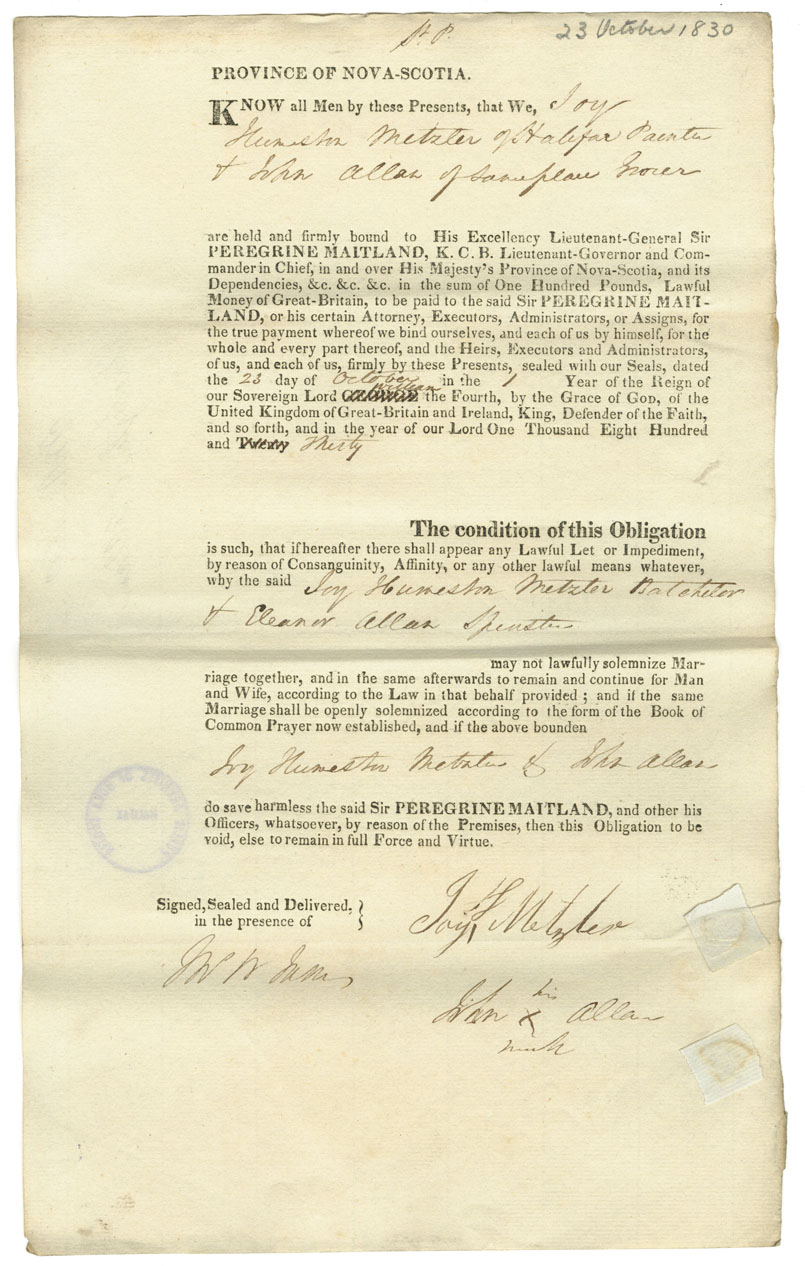 St. P.
23 October 1830
PROVINCE OF NOVA-SCOTIA.
KNOW all Men by these Presents, that We, Joy
Humeston Metzler of Halifax Painter
& John Allan of same place Grocer
are held and firmly bound to His Excellency Lieutenant-General Sir
PEREGRINE MAITLAND, K. C. B. Lieutenant-Governor and Com-
mander in Chief, in and over His Majesty's Province of Nova-Scotia, and its
Dependencies, &c. &c. &c. in the sum of One Hundred Pounds, Lawful
Money of Great-Britain, to be paid to the said Sir PEREGRINE MAIT-
LAND, or his certain Attorney, Executors, Administrators, or Assigns, for
the true payment whereof we bind ourselves, and each of us by himself, for the
whole and every part thereof, and the Heirs, Executors and Administrators,
of us, and each of us, firmly by these Presents, sealed with our Seals, dated
the 23 day of October in the 1 Year of the Reign of
our Sovereign Lord William the Fourth, by the Grace of GOD, of the
United Kingdom of Great-Britain and Ireland, King, Defender of the Faith,
and so forth, and in the year of our Lord One Thousand Eight Hundred
and Twenty Thirty
The condition of this Obligation
is such, that if hereafter there shall appear any Lawful Let or Impediment,
by reason of Consanguinity, Affinity, or any other lawful means whatever,
why the said Joy Humeston Metzler Batchelor
& Eleanor Allan Spinster
may not lawfully solemnize Mar-
riage together, and in the same afterwards to remain and continue for Man
and Wife, according to the Law in that behalf provided ; and if the same
Marriage shall be openly solemnized according to the form of the Book of
Common Prayer now established, and if the above bounden
Joy Humeston Metzler & John Allan
do save harmless the said Sir PEREGRINE MAITLAND, and other his
Officers, whatsoever, by reason of the Premises, then this Obligation to be
void, else to remain in full Force and Virtue.
Signed, Sealed and Delivered,
in the presence of
Joy H Metzler
his
John X Allan
mark